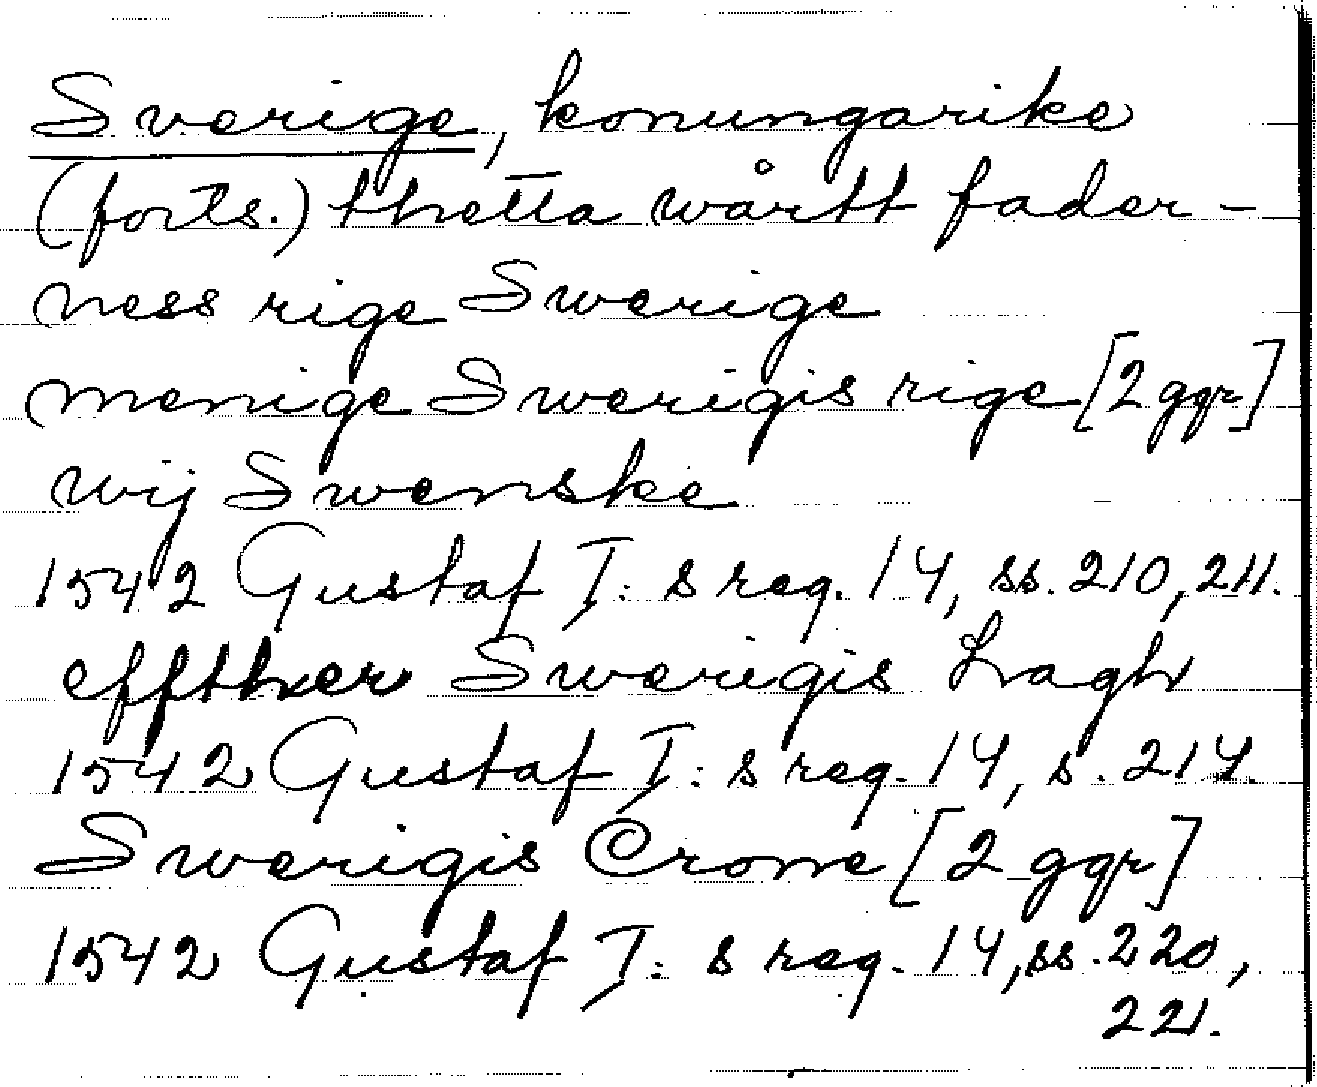 Sverige, konungarike
(forts.) thetta wårtt fader-
ness rige Swerige
menige Swerigis rige [2 ggr]
wij Swenske
1542 Gustaf I:s reg. 14, ss. 210, 211.
effther Swerigis Lagh
1542 Gustaf I:s reg. 14, s. 214
Swerigis Crone [2 ggr]
1542 Gustaf I:s reg. 14, ss. 220,
221.